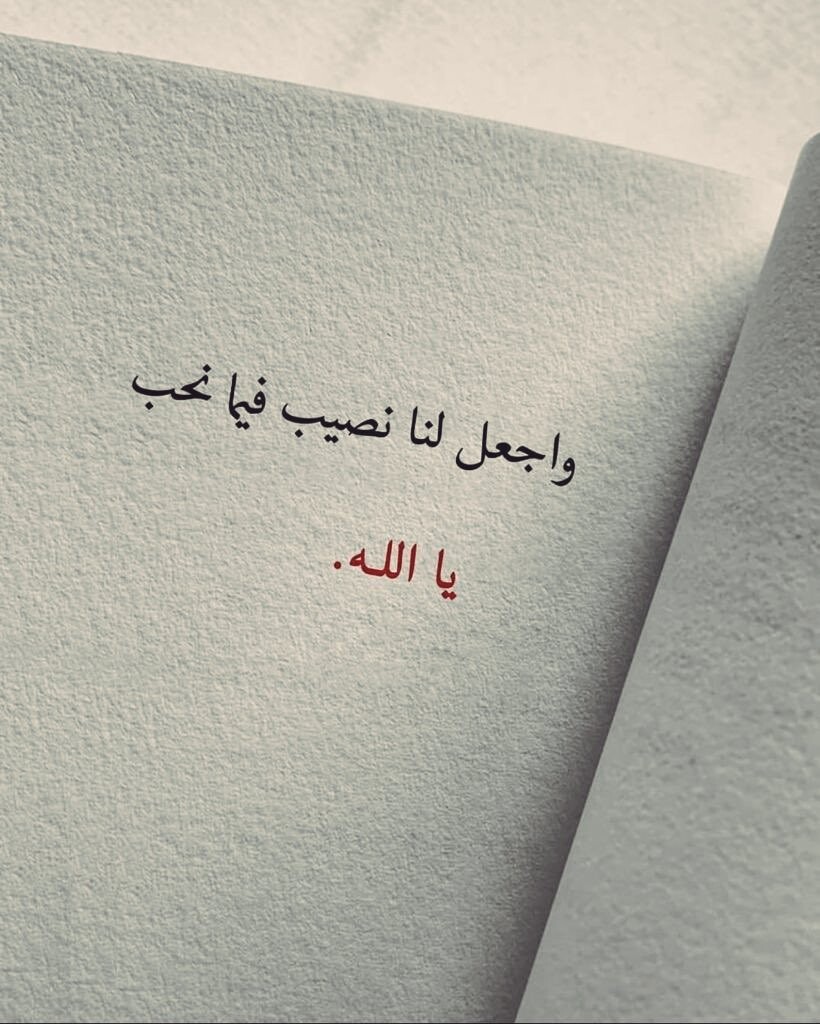 واجعل لنا نصيب فيما نحب
يا الله.